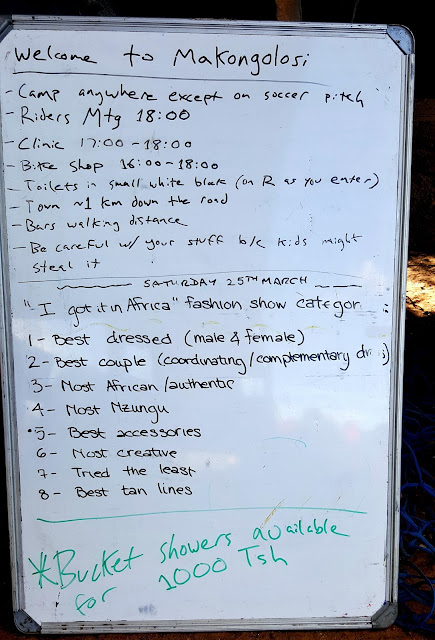 Welcome to Makongolosi
- Camp anywhere except on soccer pitch
- Riders Mtg 18:00
- Clinic 17:00 - 18:00
- Bike shop 16:00 - 18:00
- Toilets in small white block (on R as you enter)
- Town ~1 km down the road
- Bars walking distance
- Be careful w/ your stuff b/c kids might
steal it
SATURDAY 25TH MARCH
"I got it in Africa" fashion show categor :
1 - Best dressed (male & female)
2 - Best couple (coordinating/complementary
3 - Most African/authentic
4 - Most Mzungu
5 - Best accessories
6 - Most creative
7 - Tried the least
8 - Best tan lines
*Bucket showers available
for 1000 Tsh